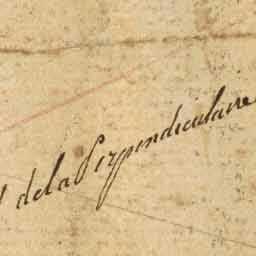 de la Perpendiculaire